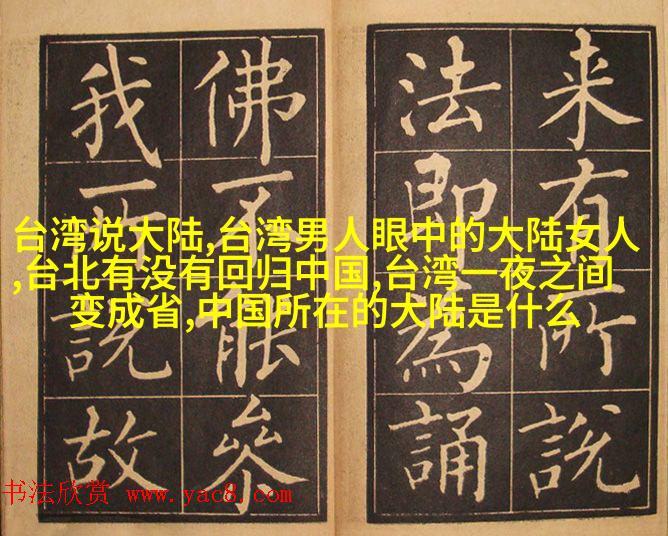 来有所說
法即為誦
佛不能叅
我所說故
台湾说大陆,台湾男人眼中的大陆女人
,台北有没有回归中国,台湾一夜之间
变成省,中国所在的大陆是什么
书法欣赏 www.yac8.com